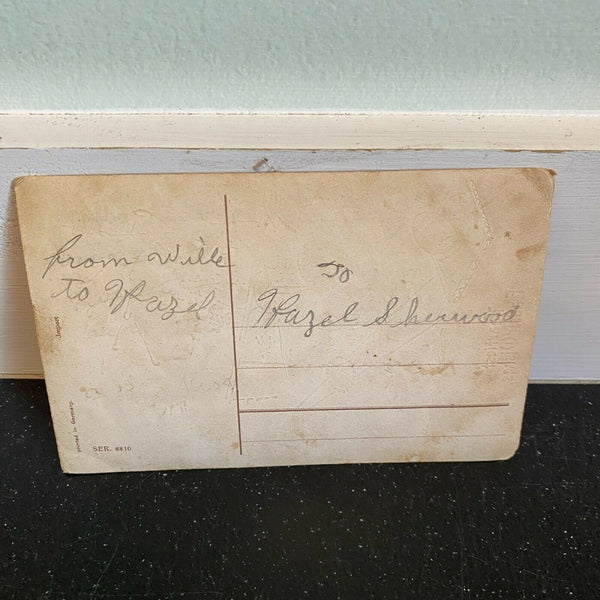 from Wille
to Hazel
To
Hazel Sherwood
Import
Printed in Germany
SER. 6810